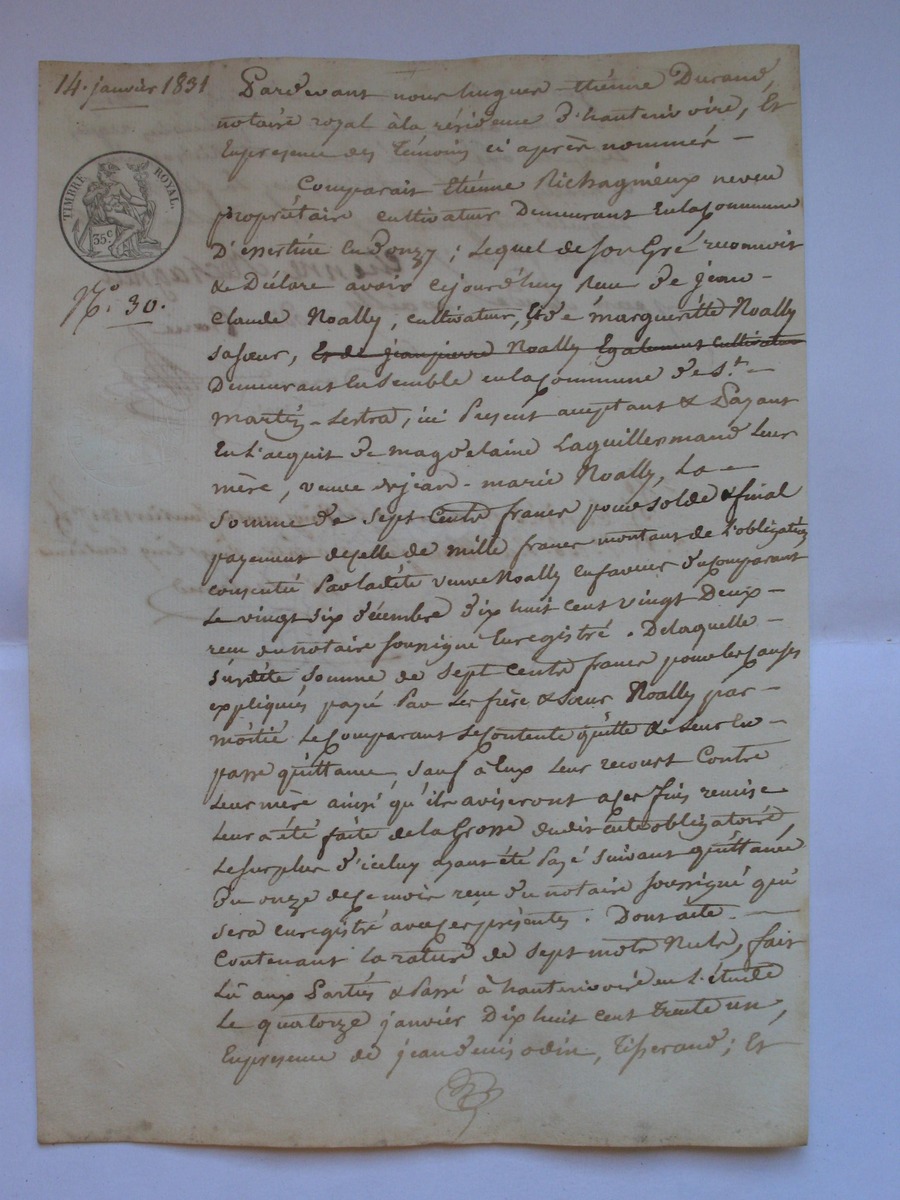 14. janvier 1831
Pardevant nous hugues - étiénne Durand,
notaire royal à la résidence d'hauterivoire, Et
Enpresence des Témoins ci après nommés -
TIMBRE ROYAL.
35c
Comparait Etiénne Richagnieux neveu
propriétaire cultivateur Demeurant Enlacommune
D'essertine En Donzy ; Lequel de son Gré reconnoit
& Déclare avoir cejourd'huy reçu de jean-
No. 30.
claude Noally, cultivateur, & de margueritte Noally
sa soeur, Et de jean pierre Noally Egalement cultivateur
Demeurant Ensemble en la Commune de St. -
martin-Lestra, ici Présent acceptant & Payant
En L'acquit de magdelaine Laguillermand Leur
mère, veuve de jean - marie Noally, La -
somme de sept Cents francs pour solde & final
payement decelle de mille francs montant de L'obligation
consentie Par ladite veuve Noally en faveur du Comparant
Le vingt six décembre dix huit cent vingt Deux -
reçu du notaire soussigné Enregistré. De laquelle -
susdite somme de sept Cents francs pour les causes
expliquées payé Par Les frère & soeur Noally par -
moitié Le Comparant Se Contente quitte & Leur En -
passe quittance, sauf à Eux Leur recours Contre
Leur mère ainsi qu'ils aviseront a ces fins remise
Leur a été faite de la Grosse dudit acte obligatoire,
Le surplus d'iceluy ayant été Payé suivant quittance
du onze de ce mois reçu du notaire soussigné qui
sera enregistré avec ces présentes. Dont acte. -
Contenant La rature de sept mots Nuls, fait
Lû aux Parties & Passé à hauterivoire en L'étude
Le quatorze janvier Dix huit cent trente un,
En presence de jean denis odin, Tisserand ; Et